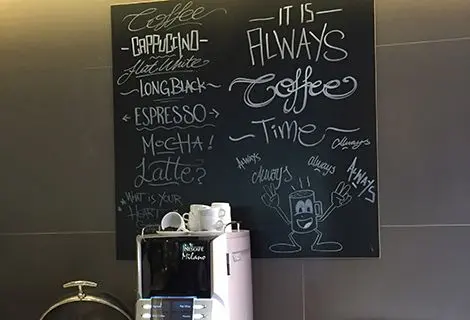 Coffee
CAPPUCCINO
Flat White
LONG BLACK
ESPRESSO
MOCHA!
Latte?
WHAT IS YOUR
HEART
IT IS
ALWAYS
Coffee
TIME
Always
ALWAYS
Always
always
ALWAYS
NESCAFÉ
Milano